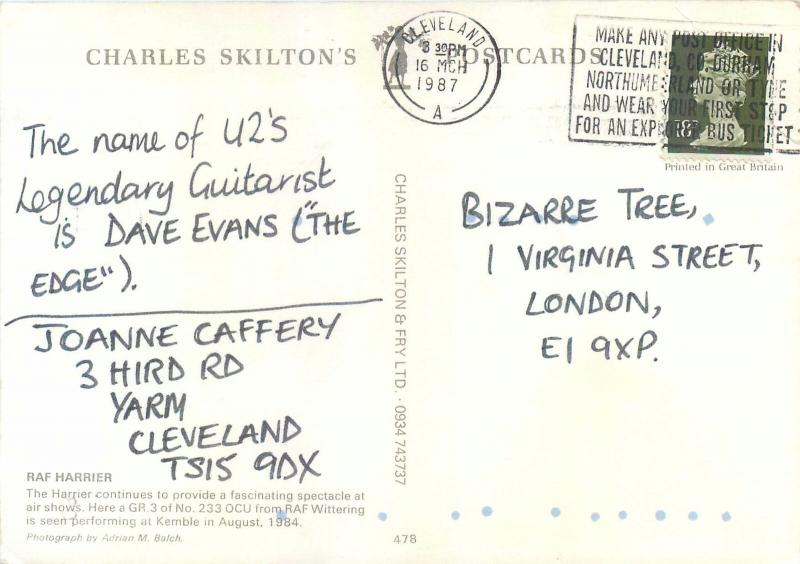 CHARLES SKILTON'S POSTCARDS
CLEVELAND
3 30PM
16 MCH
1987
A
MAKE ANY POST OFFICE IN
CLEVELAND, CO DURHAM
NORTHUMBERLAND OR TYNE
AND WEAR YOUR FIRST STOP
FOR AN EXPLORER BUS TICKET
18P
Printed in Great Britain
The name of U2's
Legendary Guitarist
is DAVE EVANS ("THE
EDGE").
JOANNE CAFFERY
3 HIRD RD
YARM
CLEVELAND
TS15 9DX
RAF HARRIER
The Harrier continues to provide a fascinating spectacle at
air shows. Here a GR.3 of No. 233 OCU from RAF Wittering
is seen performing at Kemble in August, 1984.
Photograph by Adrian M. Balch.
CHARLES SKILTON & FRY LTD. · 0934 743737
478
BIZARRE TREE,
1 VIRGINIA STREET,
LONDON,
E1 9XP.